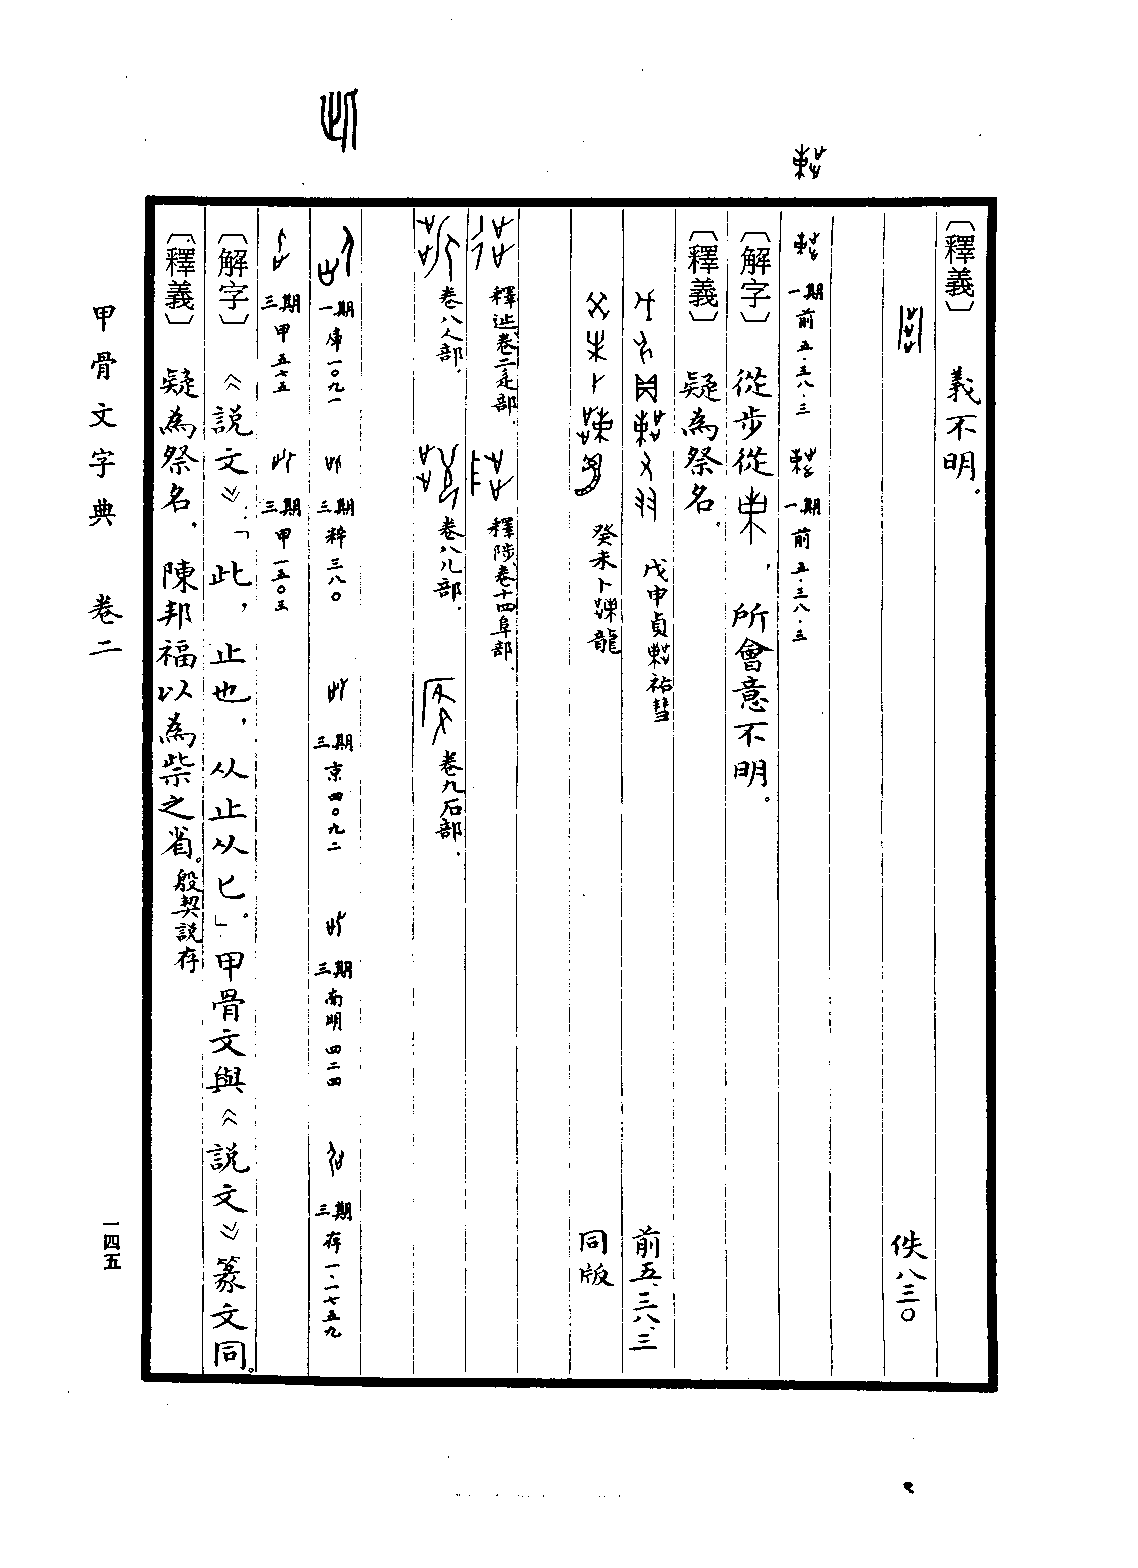 〔釋義〕 義不明。
佚八三〇
一期 前五·三八·三 一期 前五·三八·三
〔解字〕 從步從東，所會意不明。
〔釋義〕 疑為祭名。
戊申貞 祐彗 前五、三八、三
癸未卜 龍 同版
釋延卷二辵部。 釋陟卷十四阜部。
卷八人部。 卷八儿部。 卷九石部。
一期 庫一〇九一 三期 粹三八〇 三期 京四〇九二 三期 南明四二四 三期 存一·一七五九
三期 甲五七五 三期 甲一五〇三
〔解字〕 《說文》：「此，止也，从止从匕。」甲骨文與《說文》篆文同。
〔釋義〕 疑為祭名。陳邦福以為祡之省。殷契說存
甲骨文字典 卷二
一四五